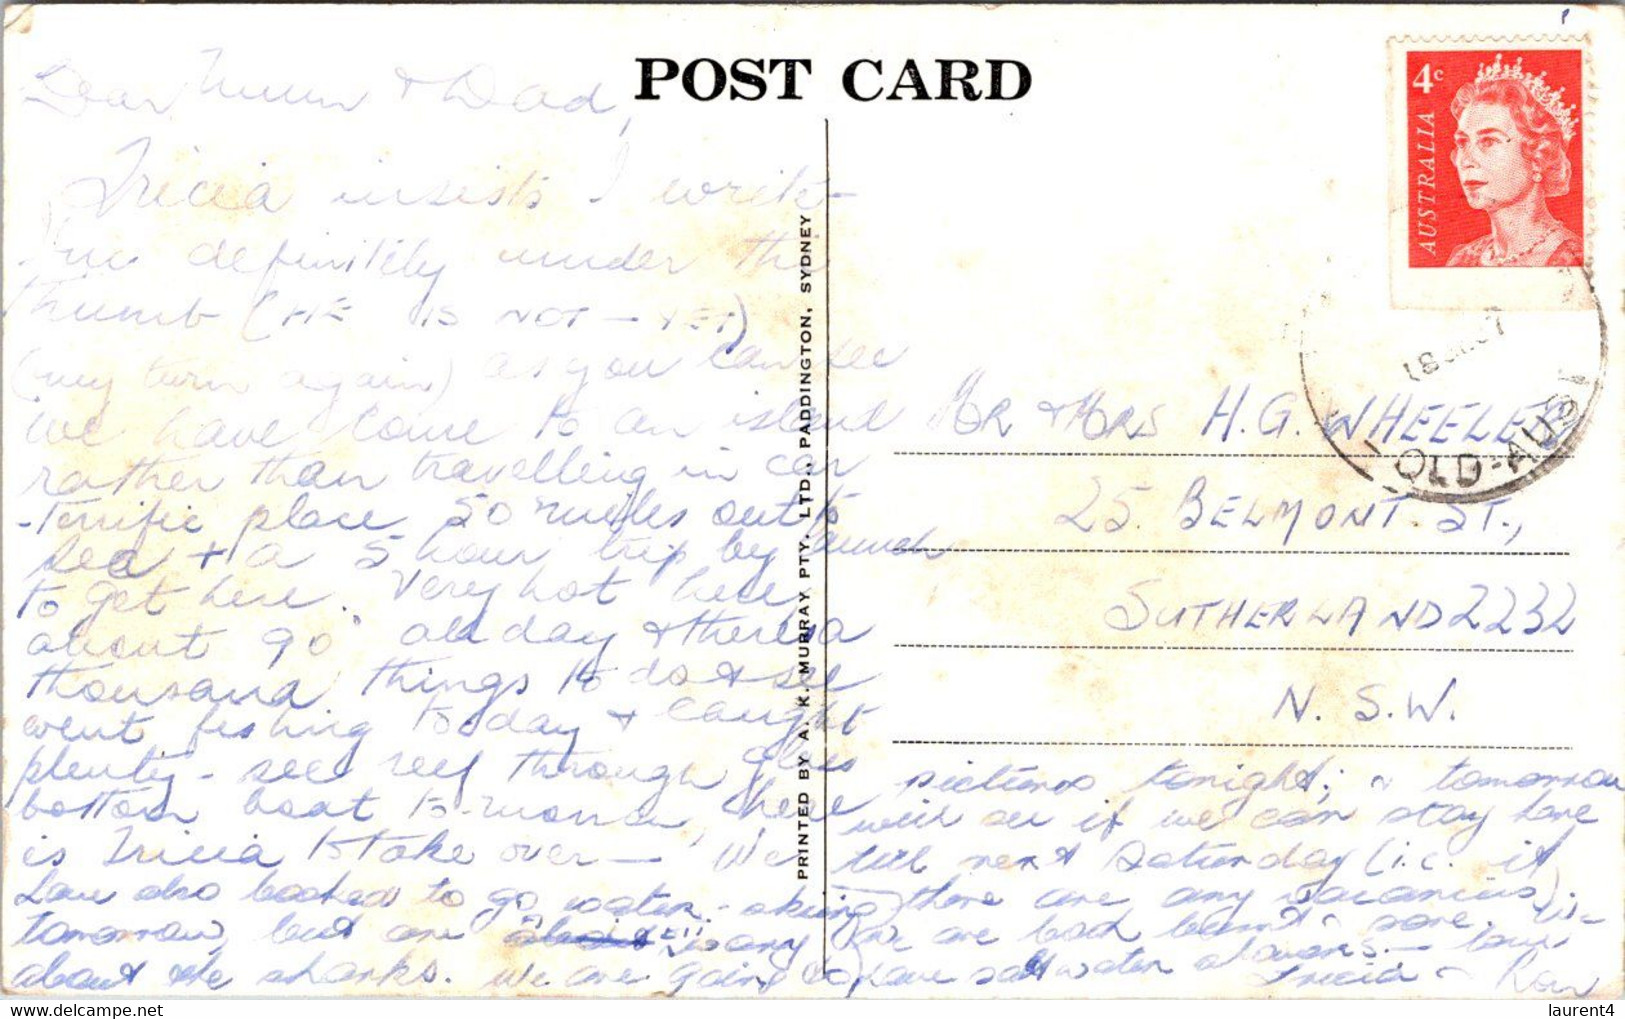 POST CARD
4c
AUSTRALIA
Dear Mum & Dad,
Tricia insists I write-
I'm definitely under the
thumb (HE IS NOT - YET)
(my turn again) as you can see
we have come to an island
rather than travelling in car
-terrific place 50 miles out to
sea + a 5 hour trip by launch
to get here. Very hot here
about 90° all day & theres a
thousand things to do & see
went fishing today & caught
plenty - see reef through glass
bottom boat to-morrow, here
is Tricia to take over - We
have also booked to go water-skiing
tomorrow, but are wary
about the sharks. We are going to
pictures tonight; & tomorrow
will see if we can stay here
till next Saturday (i.e. if
there are any vacancies).
We are both burnt & sore.
have salt water showers. - love
Tricia &
PRINTED BY A. K. MURRAY PTY. LTD., PADDINGTON, SYDNEY
MR & MRS H.G. WHEELER
25 BELMONT ST.,
SUTHERLAND 2232
N.S.W.
QLD-AUST
laurent4